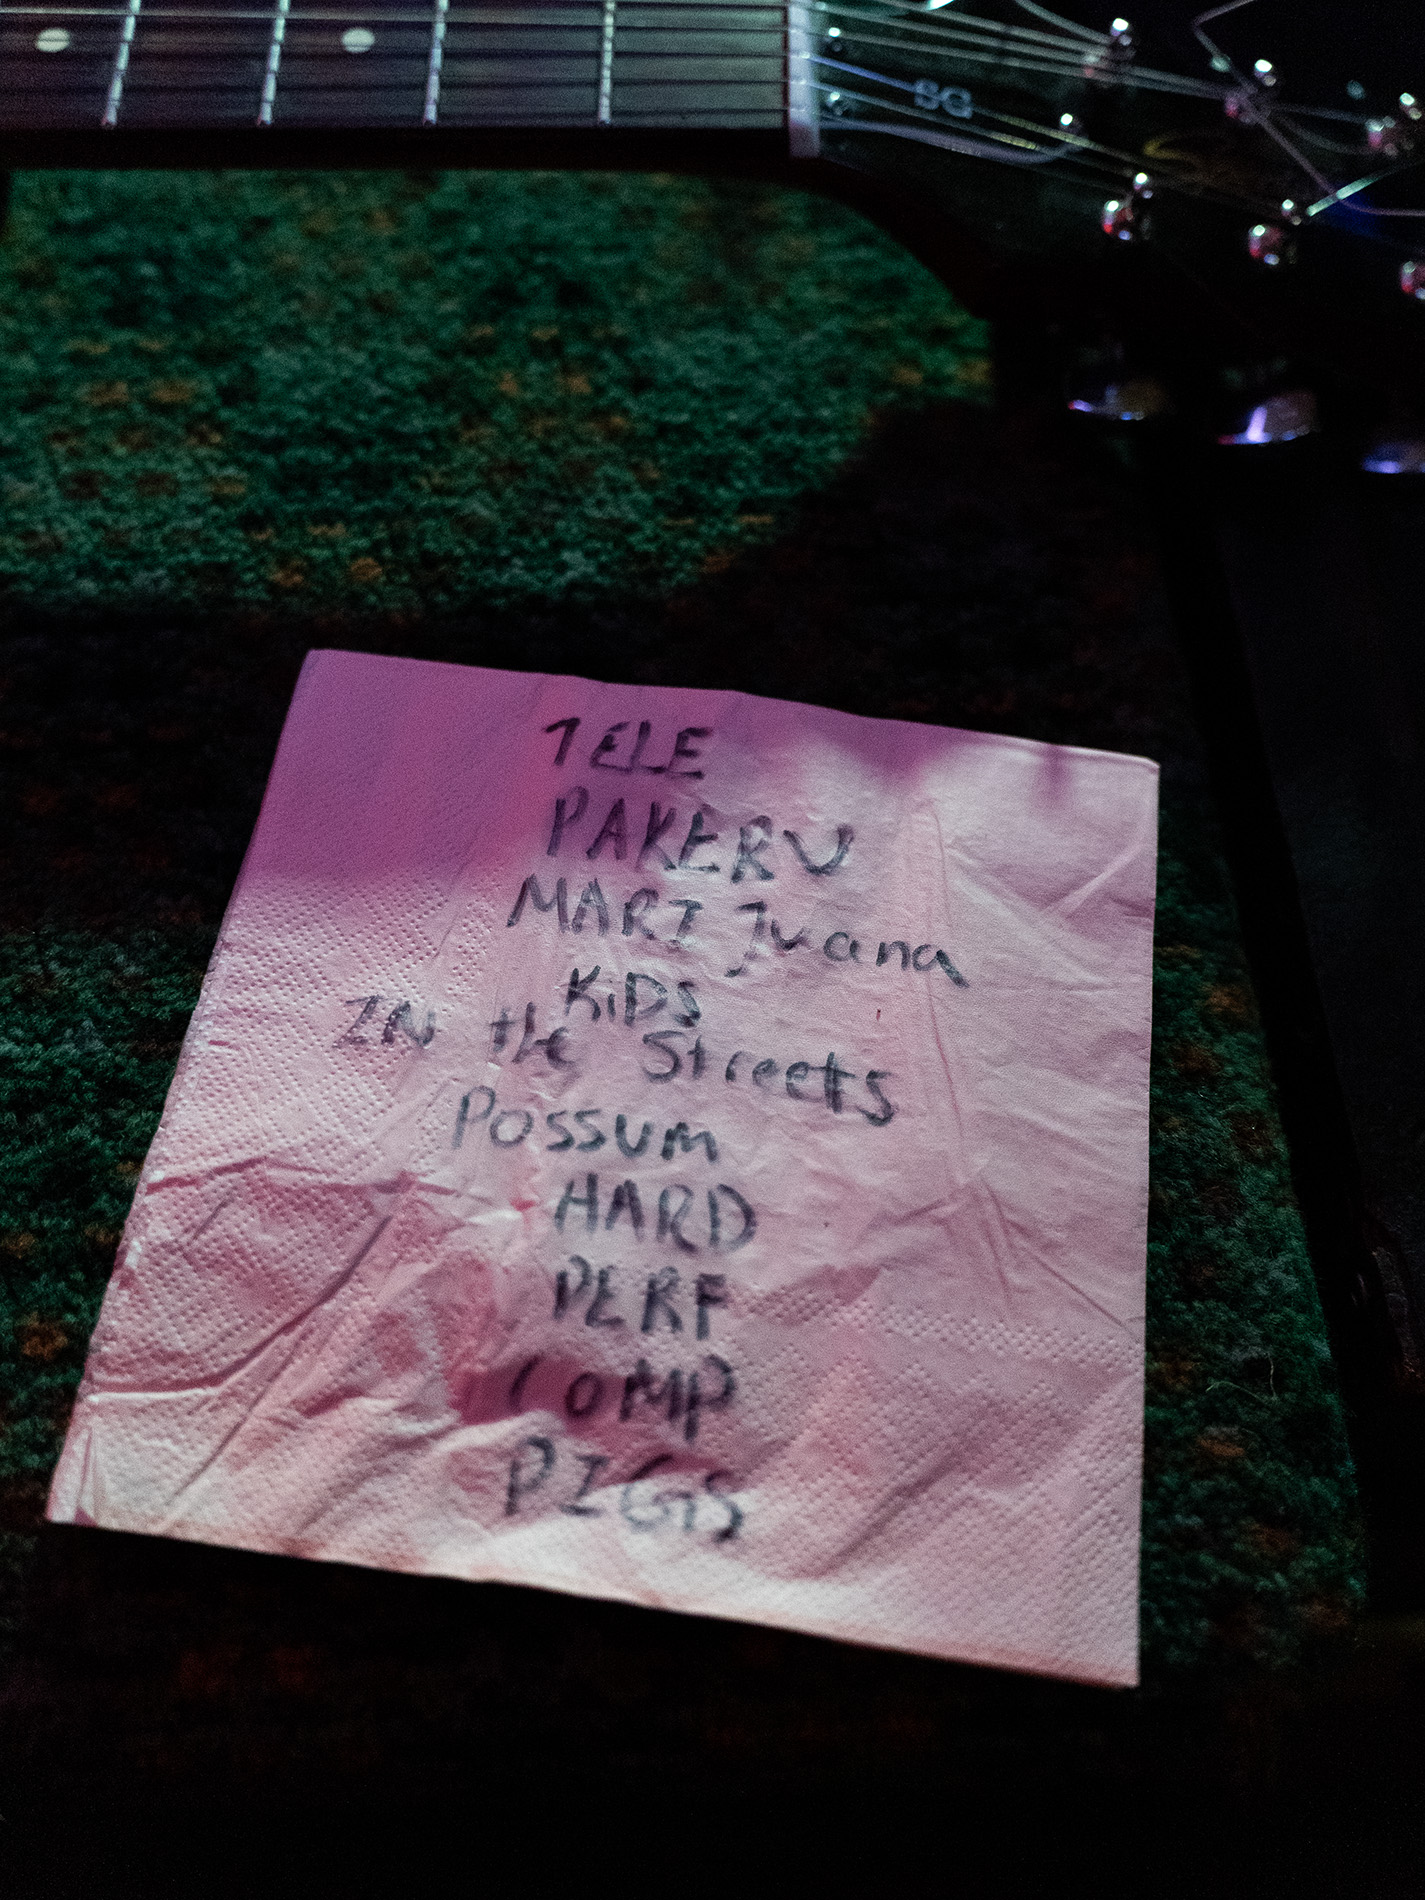 SG
TELE
PAKERU
MARIJuana
KiDS
IN the Streets
Possum
HARD
PERF
COMP
PIGS